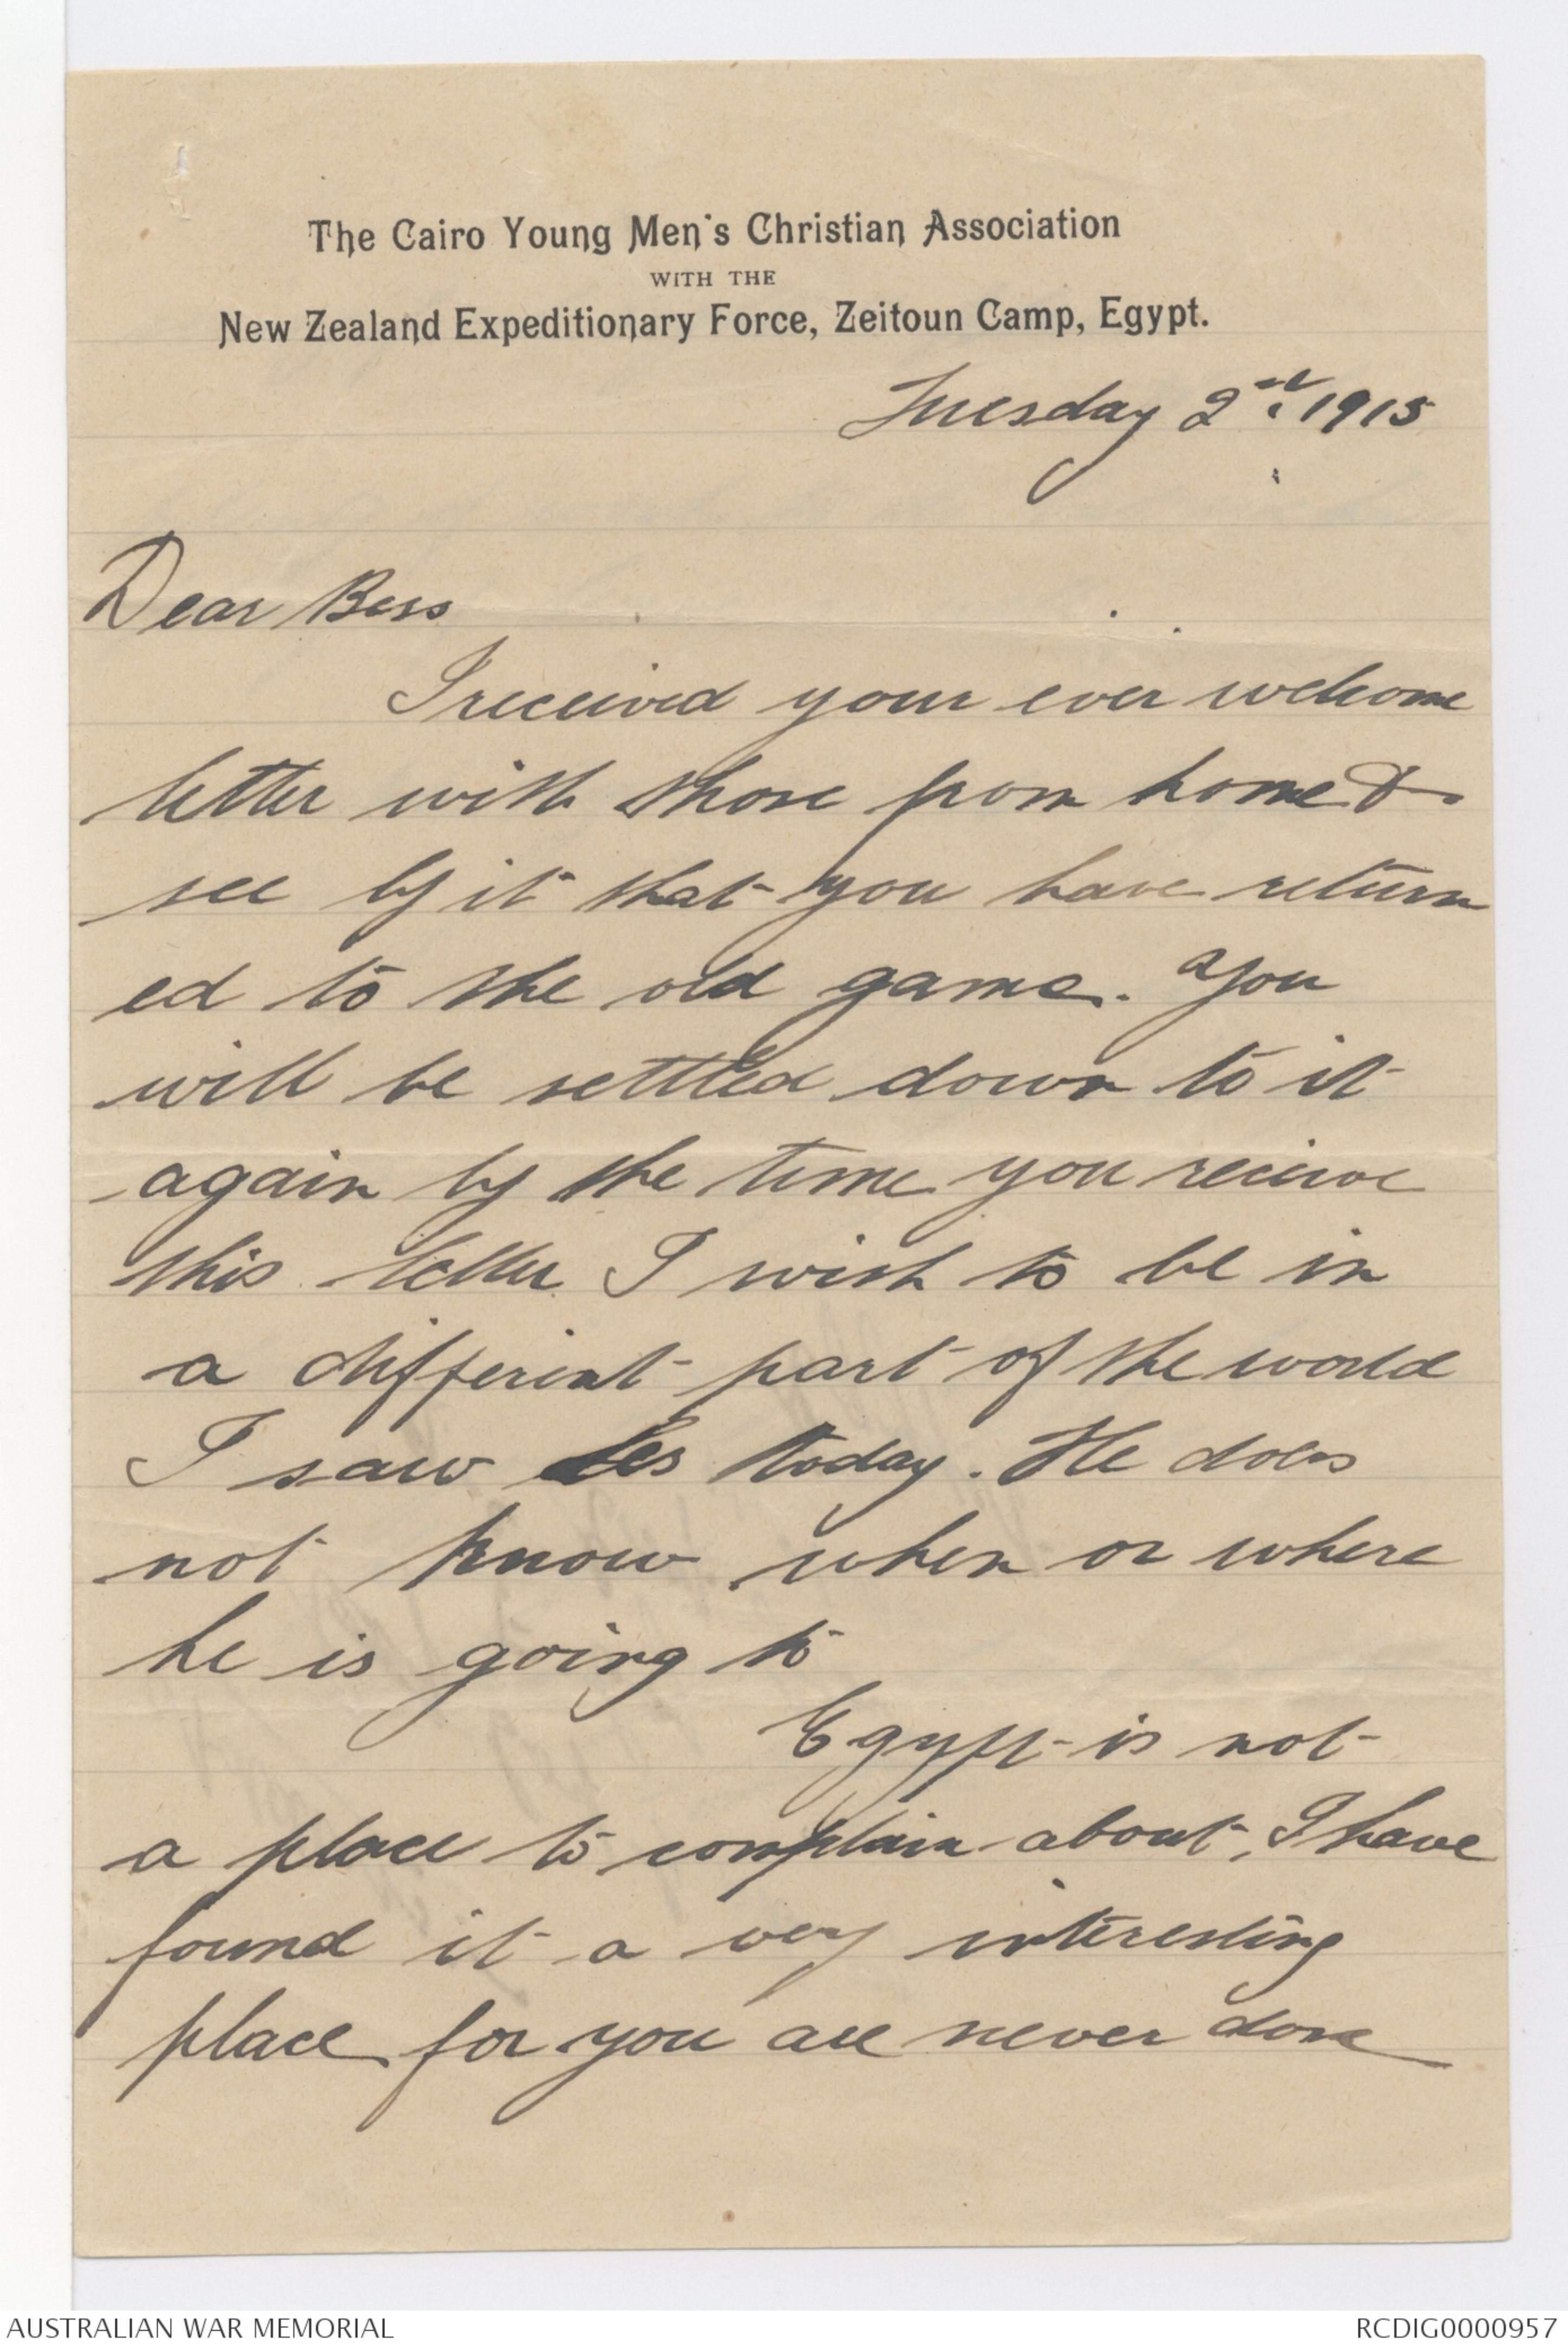 The Cairo Young Men's Christian Association
WITH THE
New Zealand Expeditionary Force, Zeitoun Camp, Egypt.
Tuesday 2nd. 1915
Dear Bess
I received your ever welcome
letter with those from home &
see by it that you have return
ed to the old game. You
will be settled down to it
again by the time you recieve
this letter. I wish to be in
a different part of the world
I saw Les today. He does
not know when or where
he is going to
Egypt is not
a place to complain about, I have
found it a very interesting
place for you are never done
AUSTRALIAN WAR MEMORIAL
RCDIG0000957